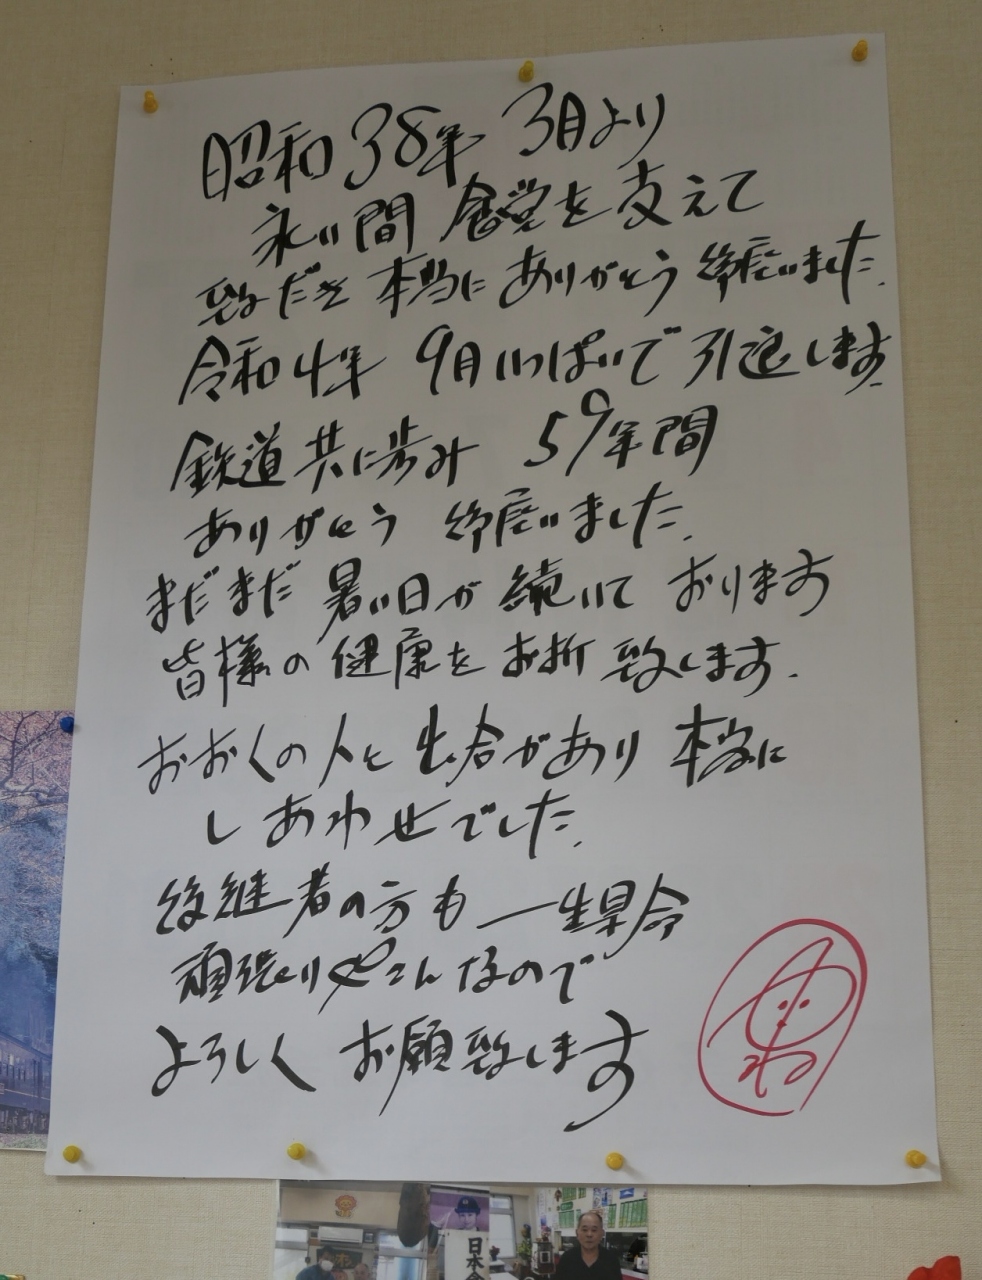 昭和38年 3月より
永い間 食堂を支えて
致だき 本当に ありがとう 御座いました.
令和4年 9月いっぱいで 引退します
鉄道共に歩み 59年間
ありがとう 御座いました.
まだまだ 暑い日が 続いて おります
皆様の健康を お祈 致します.
おおくの人と 出合があり 本当に
しあわせでした.
後継者の方も 一生县命
頑張り屋さんなので
よろしく お願致します
日本食